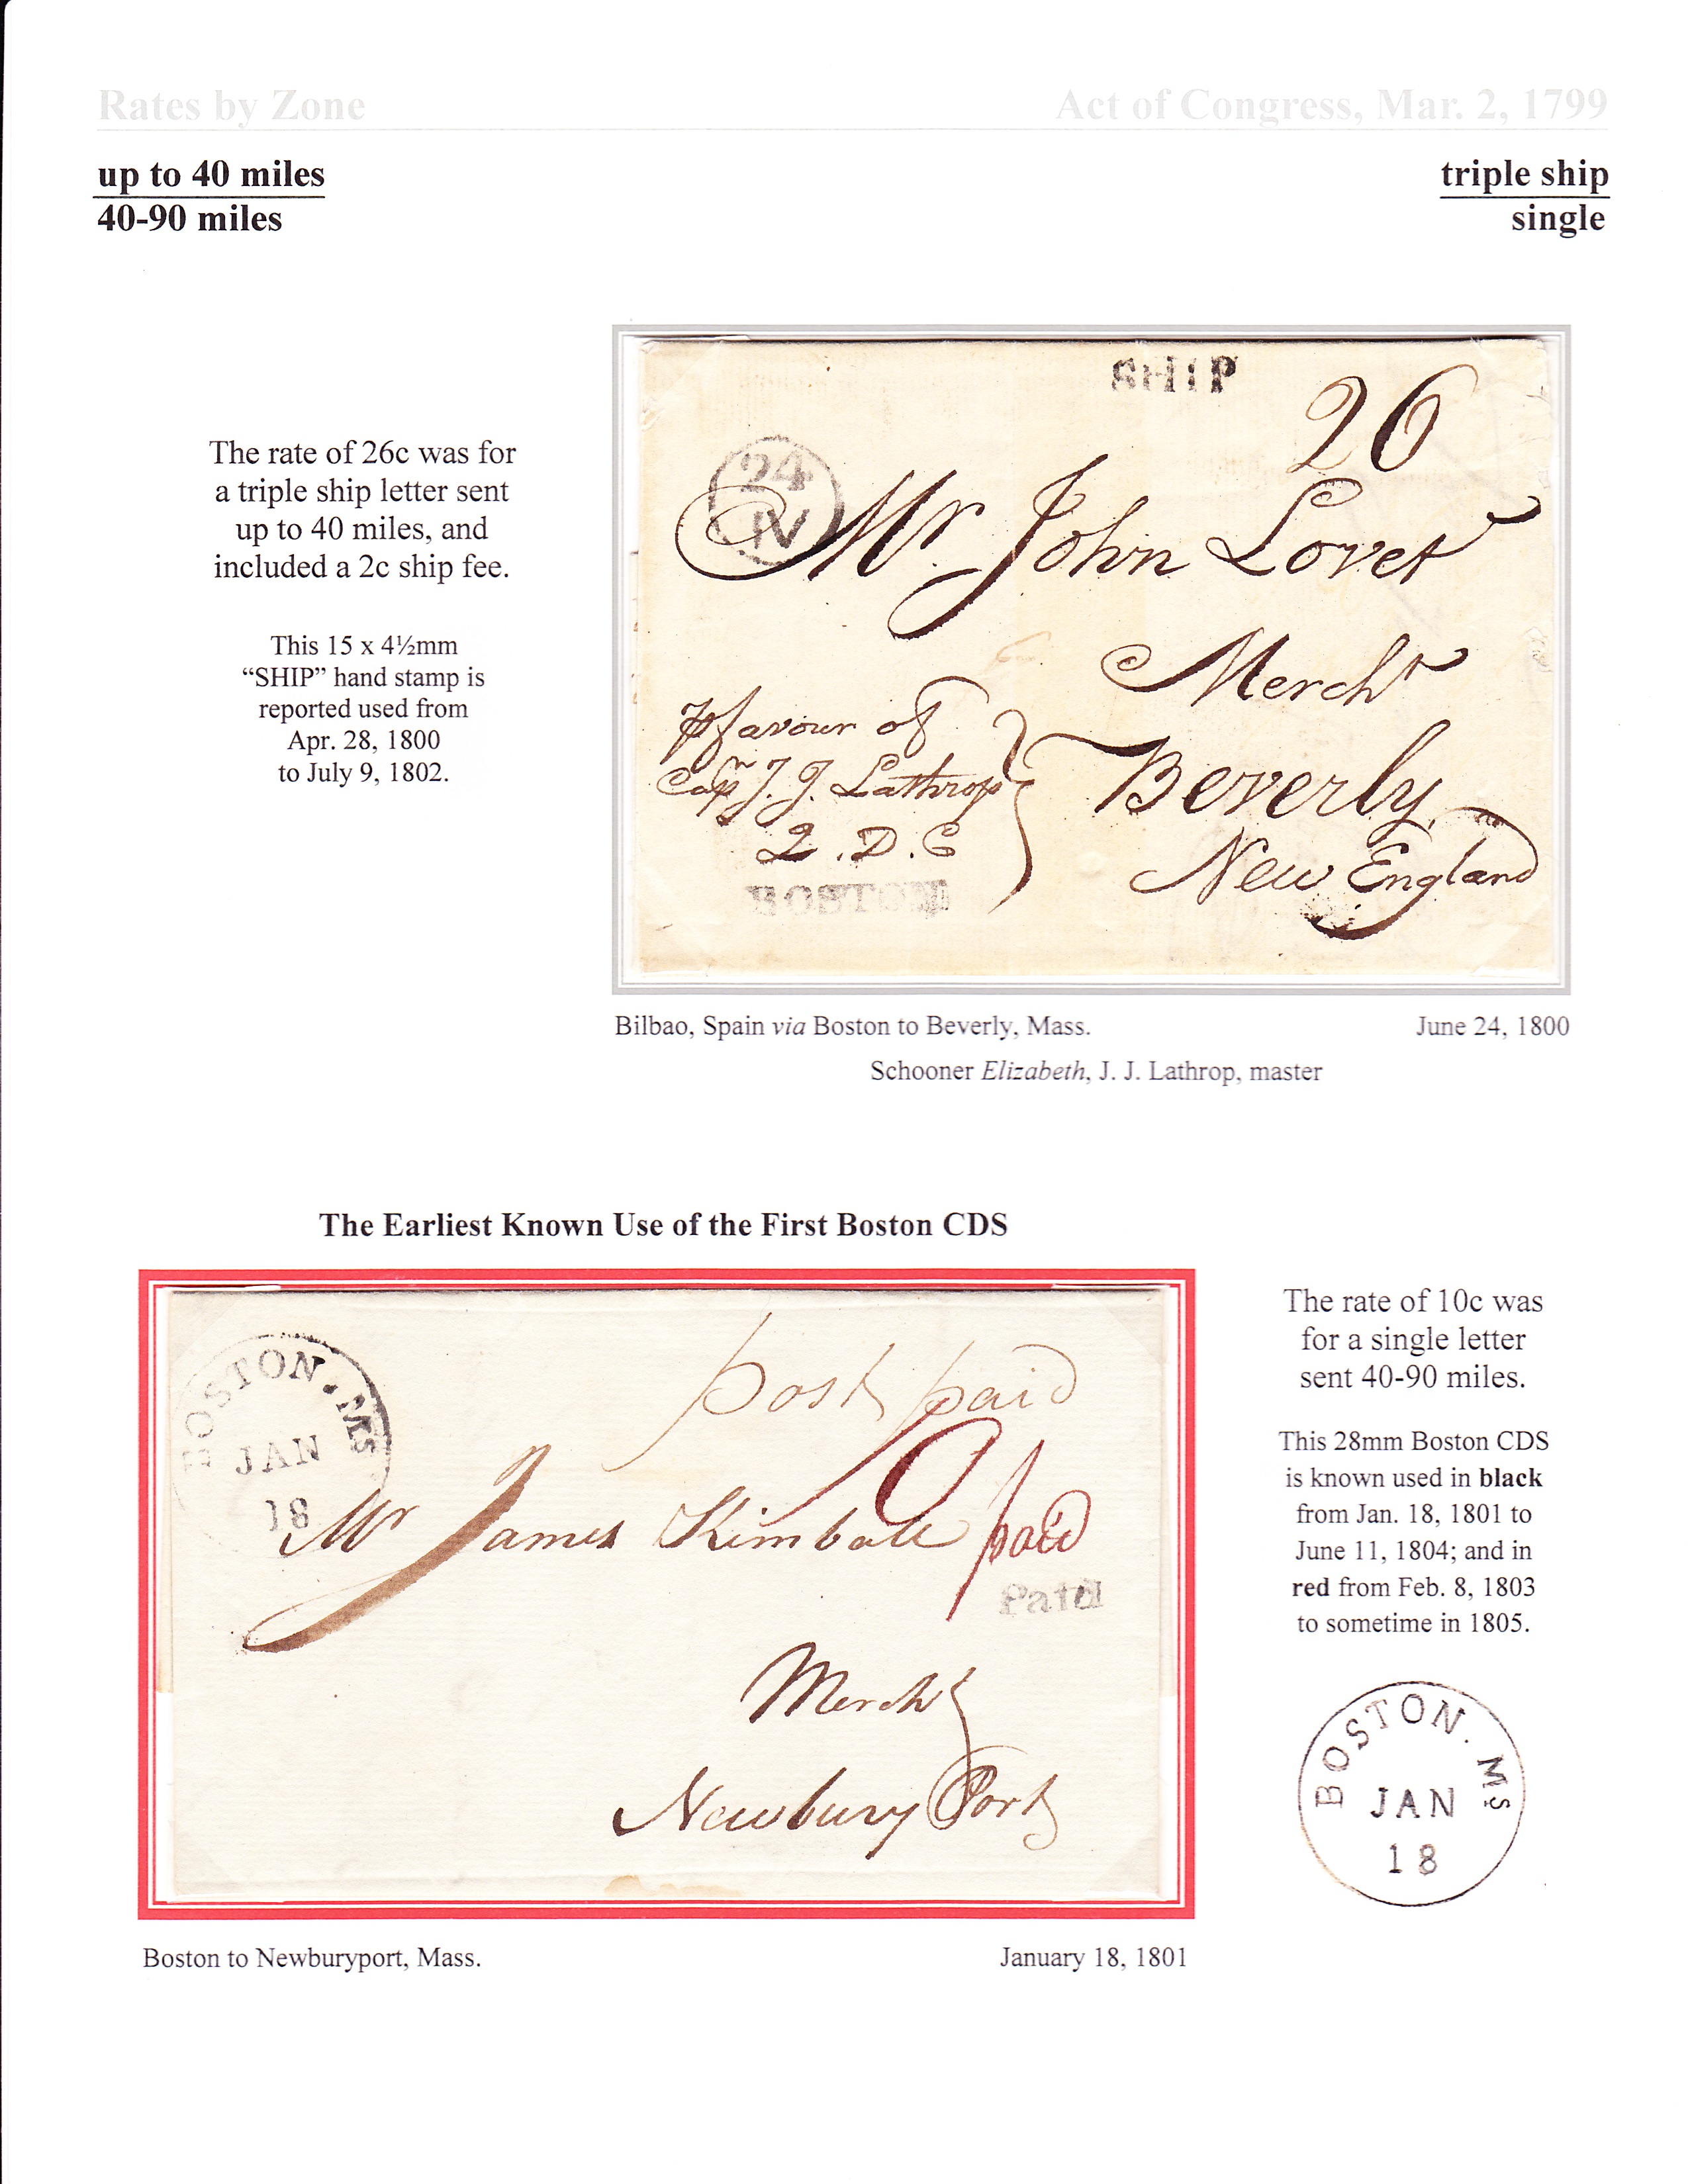 Rates by Zone
Act of Congress, Mar. 2, 1799
up to 40 miles
40-90 miles
triple ship
single
The rate of 26c was for
a triple ship letter sent
up to 40 miles, and
included a 2c ship fee.
This 15 x 4½mm
“SHIP” hand stamp is
reported used from
Apr. 28, 1800
to July 9, 1802.
SHIP
26
24
IV
Mr. John Lovet
Mercht
Beverly
New England
favour of
Capn J. J. Lathrop
Q.D.C
BOSTON
Bilbao, Spain via Boston to Beverly, Mass.
June 24, 1800
Schooner Elizabeth, J. J. Lathrop, master
The Earliest Known Use of the First Boston CDS
BOSTON. Ms
JAN
18
post paid
10 paid
Mr James Kimball
Paid
Mercht
Newbury Port
The rate of 10c was
for a single letter
sent 40-90 miles.
This 28mm Boston CDS
is known used in black
from Jan. 18, 1801 to
June 11, 1804; and in
red from Feb. 8, 1803
to sometime in 1805.
BOSTON. Ms
JAN
18
Boston to Newburyport, Mass.
January 18, 1801